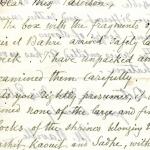 Dear Miss Paterson.
The box with the fragments of
el Bahri arrived safely la
week. I have unpacked an
examined them carefully.
you rightly presumed, it
ined none of the large and fin
ocks of the shrines belonging t
ashit, Kaouit and Sadhe, with